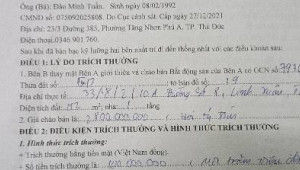 Ông (Bà): Đào Minh Tuấn. Sinh ngày 08/02/1992
CMND số: 075092025808. Do Cục cảnh sát. Cấp ngày 22/12/2021
Địa chỉ: 23/3 Đường 385, Phường Tăng Nhơn Phú A, TP. Thủ Đức
Điện thoại.0346 901 760.
Sau khi đã bàn bạc kỹ lưỡng hai bên nhất trí đi đến thống nhất với các điều khoản sau:
ĐIỀU 1: LÝ DO TRÍCH THƯỞNG
1. Bên B thay mặt Bên A giới thiệu và chào bán Bất động sản của Bên A có GCN số:
Thửa đất số tờ bản đồ số: 19
Địa chỉ thực tế: 33/8/2/10A Đường Số 8, Linh
Diện tích đất: m2, nhà:
2. Giá chào bán là: 2 802 000 000
ĐIỀU 2: ĐIỀU KIỆN TRÍCH THƯỞNG VÀ HÌNH THỨC TRÍCH THƯỞNG
1. Hình thức trích thưởng:
+ Trích thưởng bằng tiền mặt (Việt Nam đồng).
+ Số tiền trích thưởng là: 100 000 000 (Một trăm